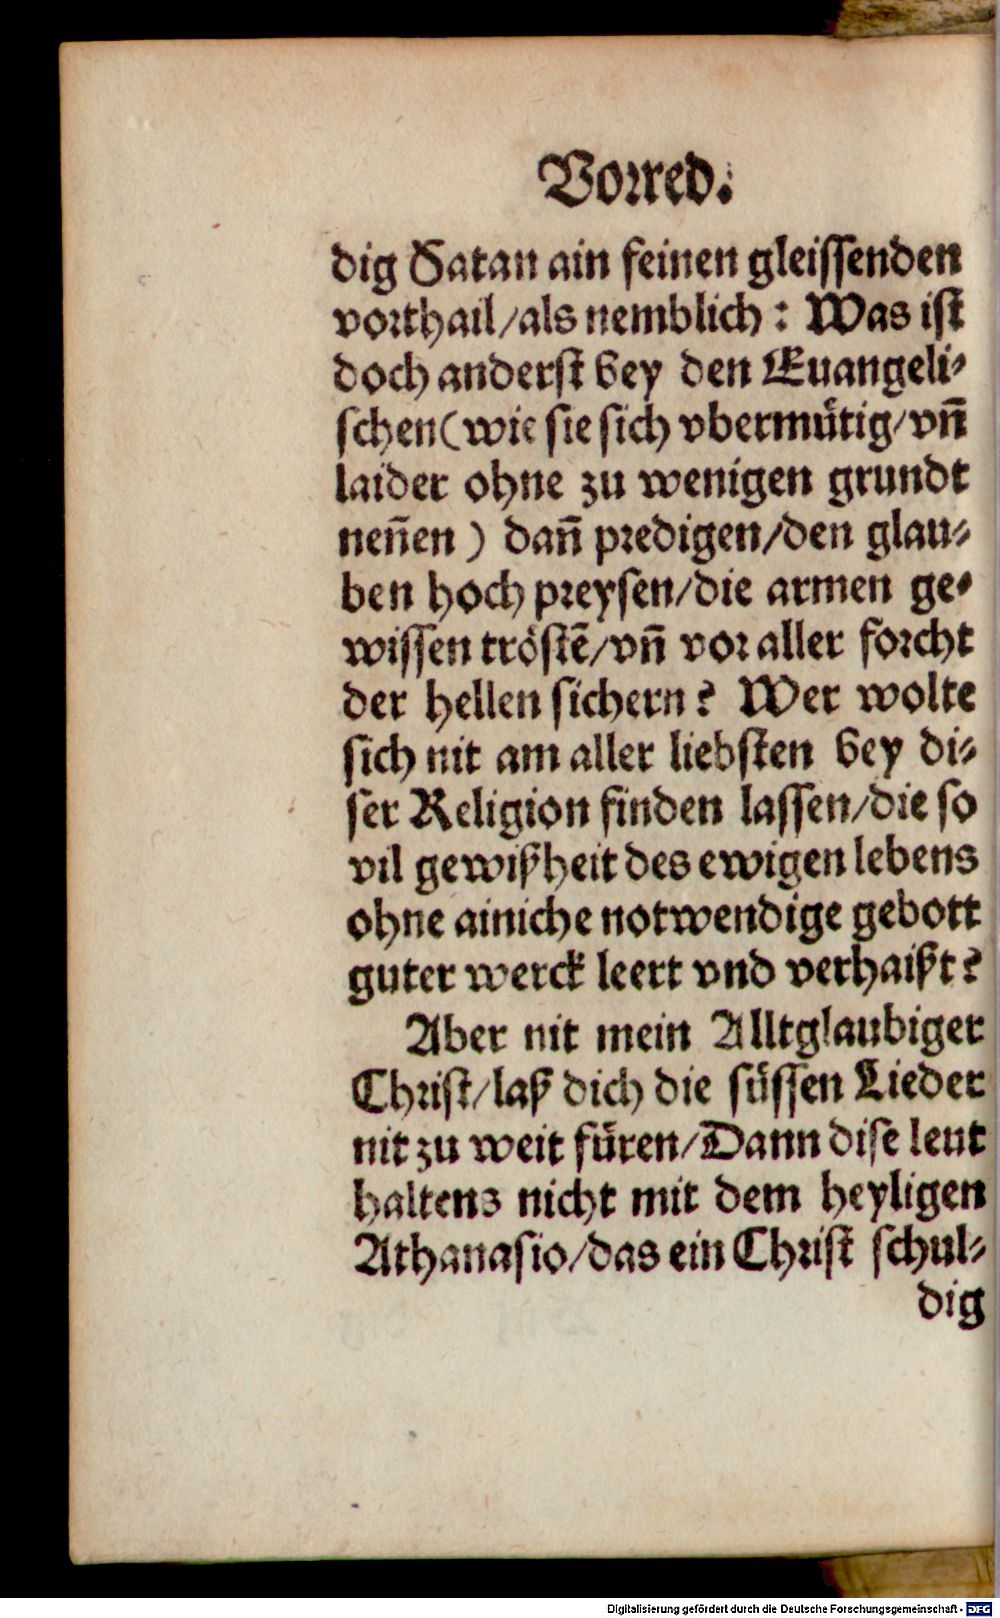 Vorred.
dig Satan ain feinen gleissenden
vorthail/als nemblich: Was ist
doch anderst bey den Euangeli-
schen(wie sie sich vbermütig/vn̄
laider ohne zu wenigen grundt
nen̄en) dan̄ predigen/den glau-
ben hoch preysen/die armen ge-
wissen tröstē/vn̄ vor aller forcht
der hellen sichern? Wer wolte
sich nit am aller liebsten bey di-
ser Religion finden lassen/die so
vil gewißheit des ewigen lebens
ohne ainiche notwendige gebott
guter werck leert vnd verhaißt?
Aber nit mein Alltglaubiger
Christ/laß dich die süssen Lieder
nit zu weit füren/Dann dise leut
haltens nicht mit dem heyligen
Athanasio/das ein Christ schul-
dig
Digitalisierung gefördert durch die Deutsche Forschungsgemeinschaft - DFG